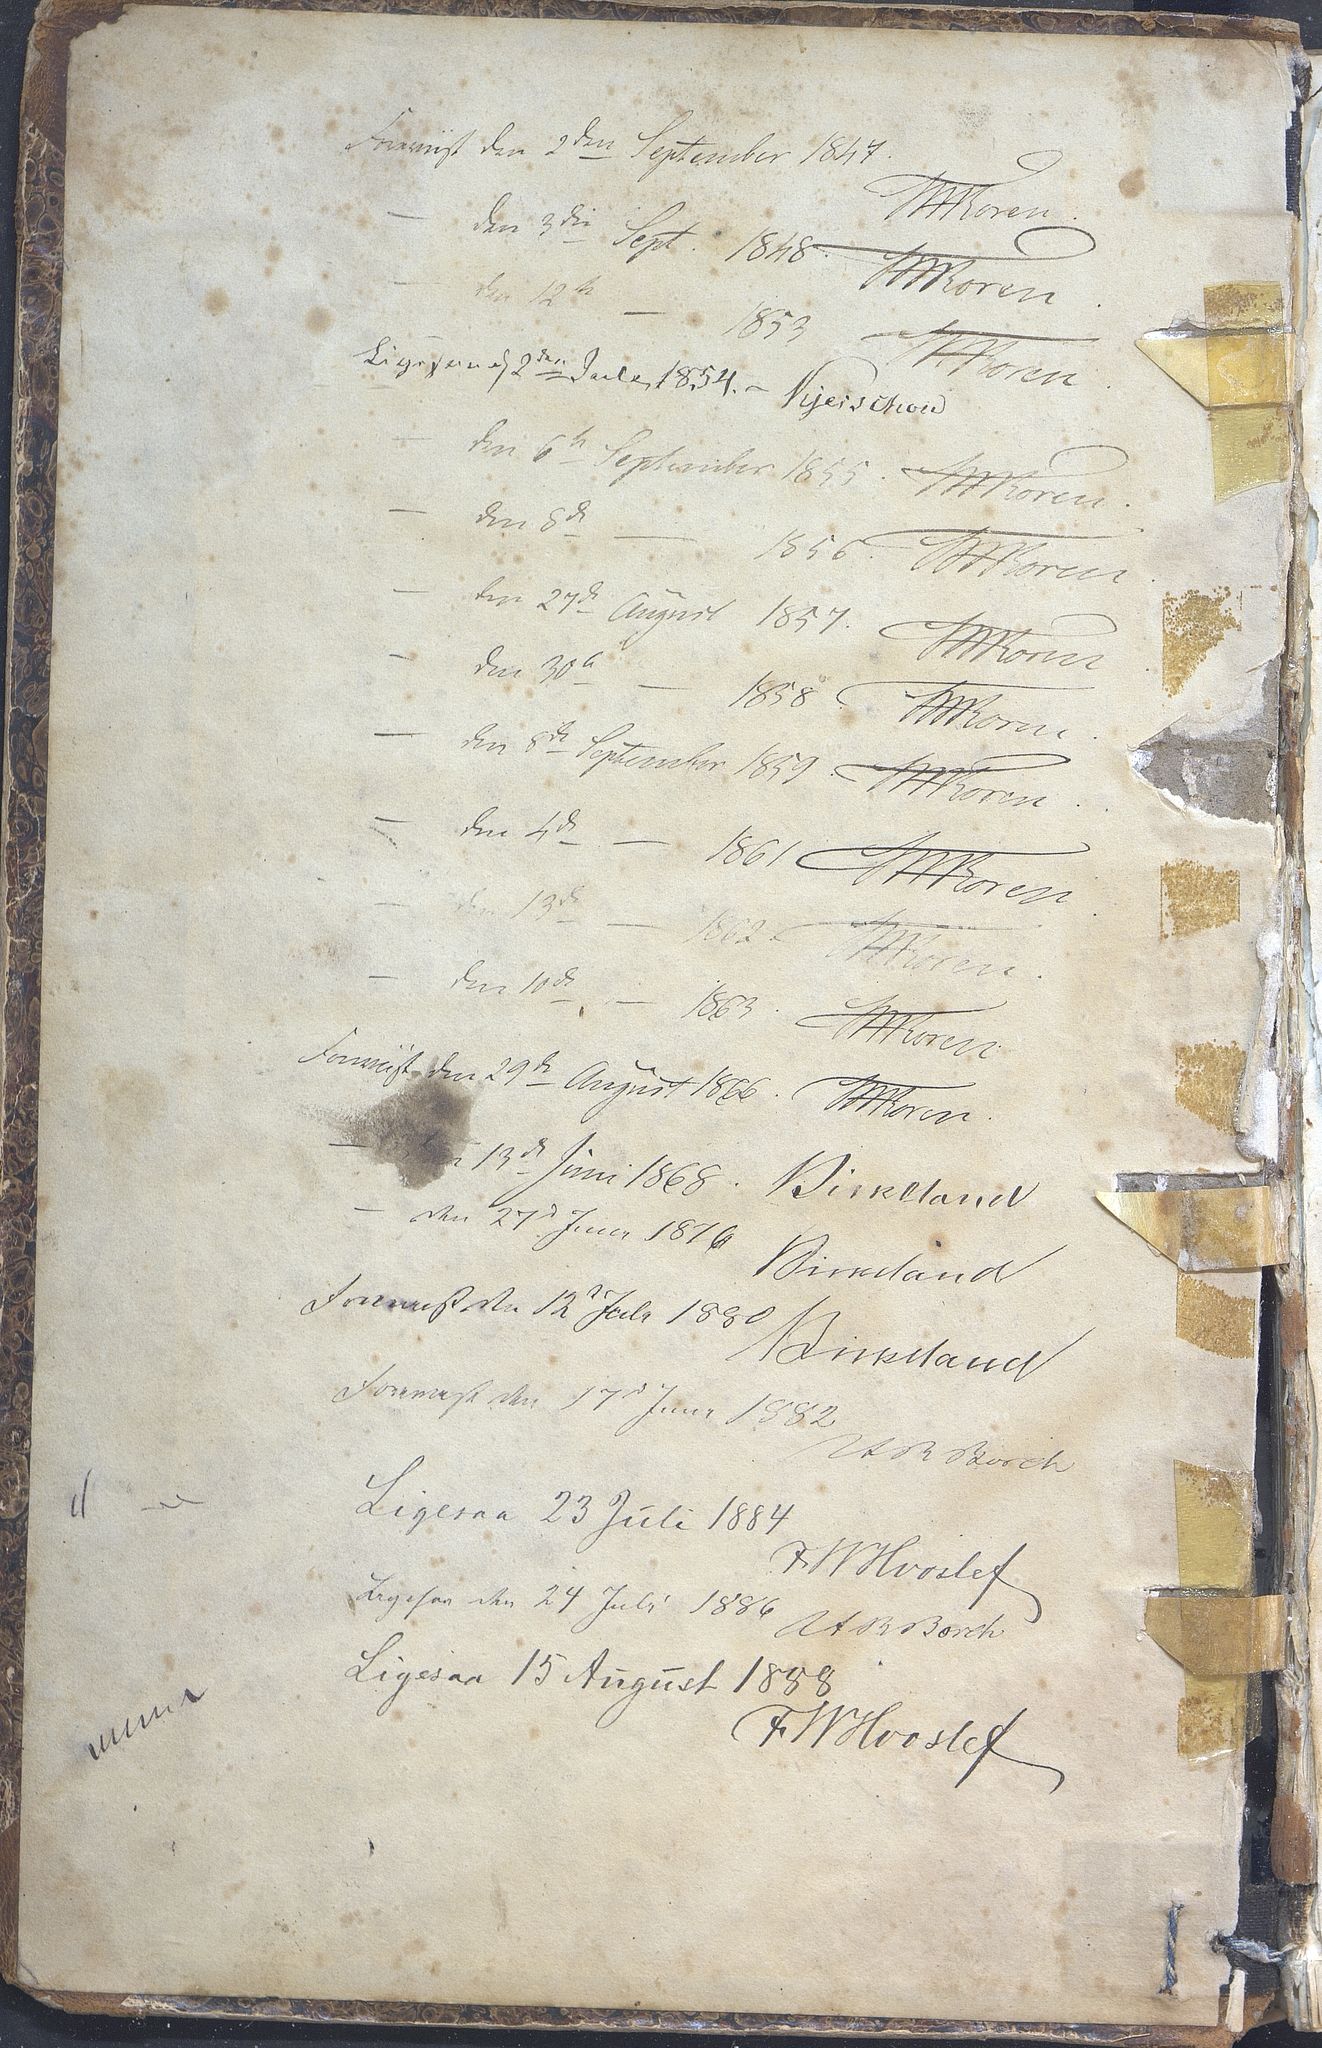 Foreviist den 2den September 1847.
WKoren
— den 3die Sept. 1848. WKoren
— den 12te — 1853 WKoren
Ligesaa d. 2den Juli 1854. – Kjerschow
— den 6te September 1855. WKoren
— den 8de — 1856. WKoren
— den 27de August 1857. WKoren
— den 30te — 1858 WKoren
— den 8de September 1859. WKoren
— den 4de — 1861 WKoren
— den 13de — 1862. WKoren
— den 10de — 1863. WKoren
Foreviist den 29de August 1866. WKoren.
— 13de Juni 1868. Birkeland
— den 27d Juni 1876 Birkeland
Foreviist den 12te Juli 1880
Birkeland
Foreviist den 17d Juni 1882
Borch
Ligesaa 23 Juli 1884
F W Hvoslef
Ligesaa den 24 Juli 1886 Borch
Ligesaa 15 August 1888
F W Hvoslef